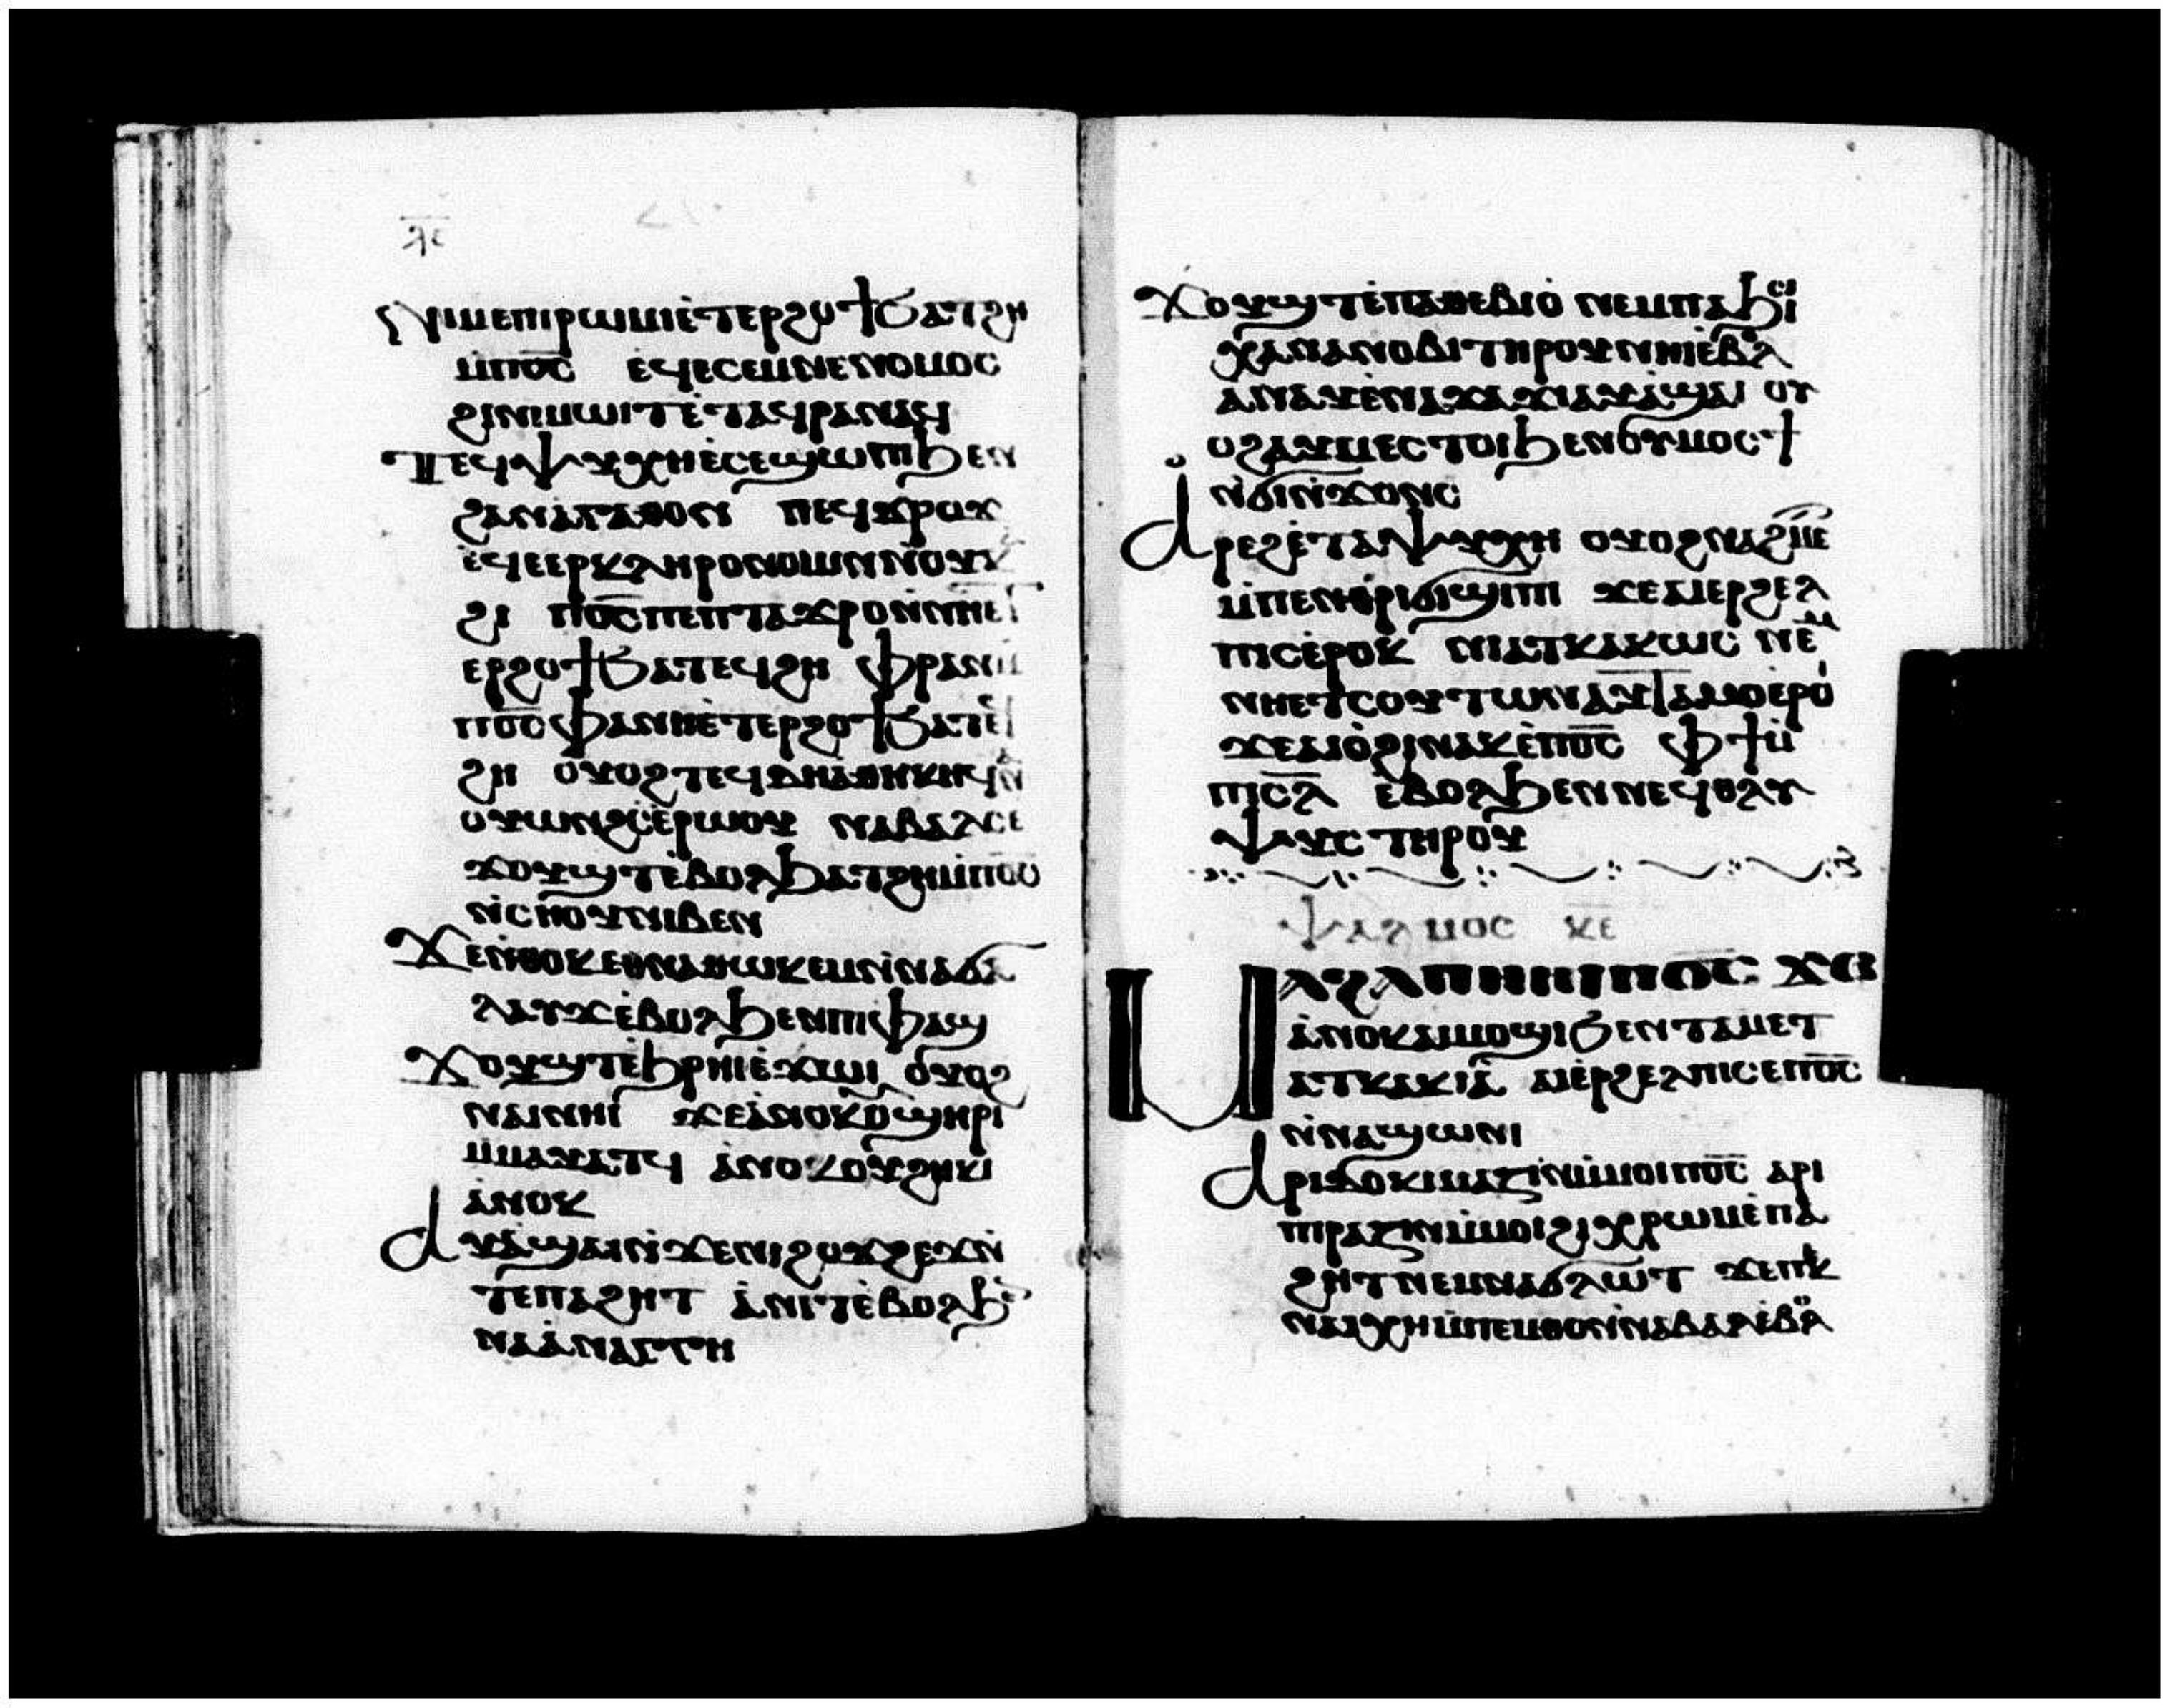 ⲗ̅ⲋ̅
ⲛⲓⲙⲉⲡⲓⲣⲱⲙⲓⲉ̀ⲧⲉⲣϩⲟϯϧⲁⲧϩⲏ
ⲙ̀ⲡⲟ̅ⲥ̅ ⲉ̀ϥⲉⲥⲉⲙⲛⲉⲛⲟⲙⲟⲥ
ϩⲓⲛⲓⲙⲱⲓⲧⲉ̀ⲧⲁϥⲣⲁⲛⲁϥ
ⲧⲉϥⲯⲩⲭⲏⲉ̀ⲥⲉϣⲱⲡⲓϧⲉⲛ
ϩⲁⲛⲁ̀ⲅⲁⲑⲟⲛ ⲡⲉϥϫⲣⲟϫ
ⲉ̀ϥⲉⲉⲣⲕⲗⲏⲣⲟⲛⲟⲙⲓⲛ
ϩⲓ ⲡⲟ̅ⲥ̅ⲡⲉⲡⲧⲁϫⲣⲟⲛ̀ⲛⲏⲉⲧ
ⲉⲣϩⲟϯϧⲁⲧⲉϥϩⲏ ⲫⲣⲁⲛⲙ̀
ⲡⲟ̅ⲥ̅ⲫⲁⲛⲏⲉ̀ⲧⲉⲣϩⲟϯϧⲁⲧⲉϥ
ϩⲏ ⲟⲩⲟϩⲧⲉϥⲇⲏⲁⲑⲏⲕⲏϥⲛⲁ̀
ⲟⲩⲱⲛϩⲥ̀ⲉⲣⲱⲟⲩ ⲛⲁⲃⲁⲗⲥⲉ
ϫⲟⲩϣⲧⲉ̀ⲃⲟⲗϧⲁⲧϩⲏⲙ̀ⲡⲟ̅ⲥ̅
ⲛ̀ⲥⲏⲟⲩⲛⲓⲃⲉⲛ
ϫⲉⲛ̀ⲑⲟⲕⲉⲑⲛⲁⲑⲱⲕⲉⲙⲛ̀ⲛⲁϭⲁ
ⲗⲁⲩϫⲉ̀ⲃⲟⲗϧⲉⲛⲡⲓⲫⲁϣ
ϫⲟⲩϣⲧⲉ̀ϧⲣⲏⲓⲉ̀ϫⲱⲓ ⲟⲩⲟϩ
ⲛⲁⲓⲛⲏⲓ ϫⲉⲁ̀ⲛⲟⲕⲟⲩϣⲏⲣⲓ
ⲙ̀ⲙⲁⲩⲁⲧϥ ⲁ̀ⲛⲟⲕⲟⲩϩⲏⲕⲓ
ⲁ̀ⲛⲟⲕ
ⲁⲩⲁ̀ϣⲁⲓⲛ̀ϫⲉⲛⲓϩⲟϫϩⲉϫⲛ̀
ⲧⲉⲡⲁϩⲏⲧ ⲁ̀ⲛⲓⲧⲉ̀ⲃⲟⲗϧⲉⲛ
ⲛⲁⲁ̀ⲛⲁⲅⲕⲏ
ϫⲟⲩϣⲧⲉ̀ⲡⲁⲑⲉⲃⲓⲟ̀ ⲛⲉⲙⲡⲁϧⲓⲥⲓ
ⲭⲁⲛⲁⲛⲟⲃⲓⲧⲏⲣⲟⲩⲛⲏⲓⲉ̀ⲃⲟⲗ
ⲁⲛⲁⲩⲉ̀ⲛⲁϫⲁϫⲓⲁⲩⲁ̀ϣⲁⲓ ⲟⲩ
ⲟϩⲁⲩⲙⲉⲥⲧⲟⲓϧⲉⲛⲟⲩⲙⲟⲥϯ
ⲛ̀ϭⲓⲛ̀ϫⲟⲛⲥ
ⲁⲣⲉϩⲉ̀ⲧⲁⲯⲩⲭⲏ ⲟⲩⲟϩⲛⲁϩⲙⲉ
ⲙ̀ⲡⲉⲛⲑⲣⲓϭⲓϣⲓⲡⲓ ϫⲉⲁⲓⲉⲣϩⲉⲗ
ⲡⲓⲥⲉ̀ⲣⲟⲕ ⲛⲓⲁⲧⲕⲁⲕⲱⲥ ⲛⲉⲙ
ⲛⲏⲉⲧⲥⲟⲩⲧⲱⲛⲁⲩⲧⲁⲙⲟⲉⲣⲟⲓ
ϫⲉⲁⲓⲟ̀ϩⲓⲛⲁⲕⲉ̀ⲡⲟ̅ⲥ̅ ⲫϯⲙ̀
ⲡⲓⲥ̅ⲗ̅ ⲉ̀ⲃⲟⲗϧⲉⲛⲛⲉϥⲑⲗⲩ
ⲯⲩⲥ ⲧⲏⲣⲟⲩ
ⲯⲁⲗⲙⲟⲥ ⲕ̅ⲉ̅
ⲙⲁϩⲁⲡⲛⲏⲓⲡⲟ̅ⲥ̅ ϫⲉ
ⲁ̀ⲛⲟⲕⲁⲓⲙⲟϣⲓϧⲉⲛⲧⲁⲙⲉⲧ
ⲁⲧⲕⲁⲕⲓⲁ̀ ⲁⲓⲉ̀ⲣϩⲉⲗⲡⲓⲥⲉⲡⲟ̅ⲥ̅
ⲛ̀ⲛⲁϣⲱⲛⲓ
ⲁⲣⲓⲇⲟⲕⲓⲙⲁⲍⲓⲛⲙ̀ⲙⲟⲓⲡⲟ̅ⲥ̅ ⲁⲣⲓ
ⲡⲓⲣⲁⲍⲓⲛⲙ̀ⲙⲟⲓϩⲓⲭⲣⲱⲙⲉ̀ⲡⲁ
ϩⲏⲧⲛⲉⲙⲛⲁϭⲗⲱⲧ ϫⲉⲡⲉⲕ
ⲛⲁⲓⲭⲏⲙ̀ⲡⲉⲙⲑⲟⲛ̀ⲛⲁⲃⲁⲗⲉ̀ⲃⲟⲗ